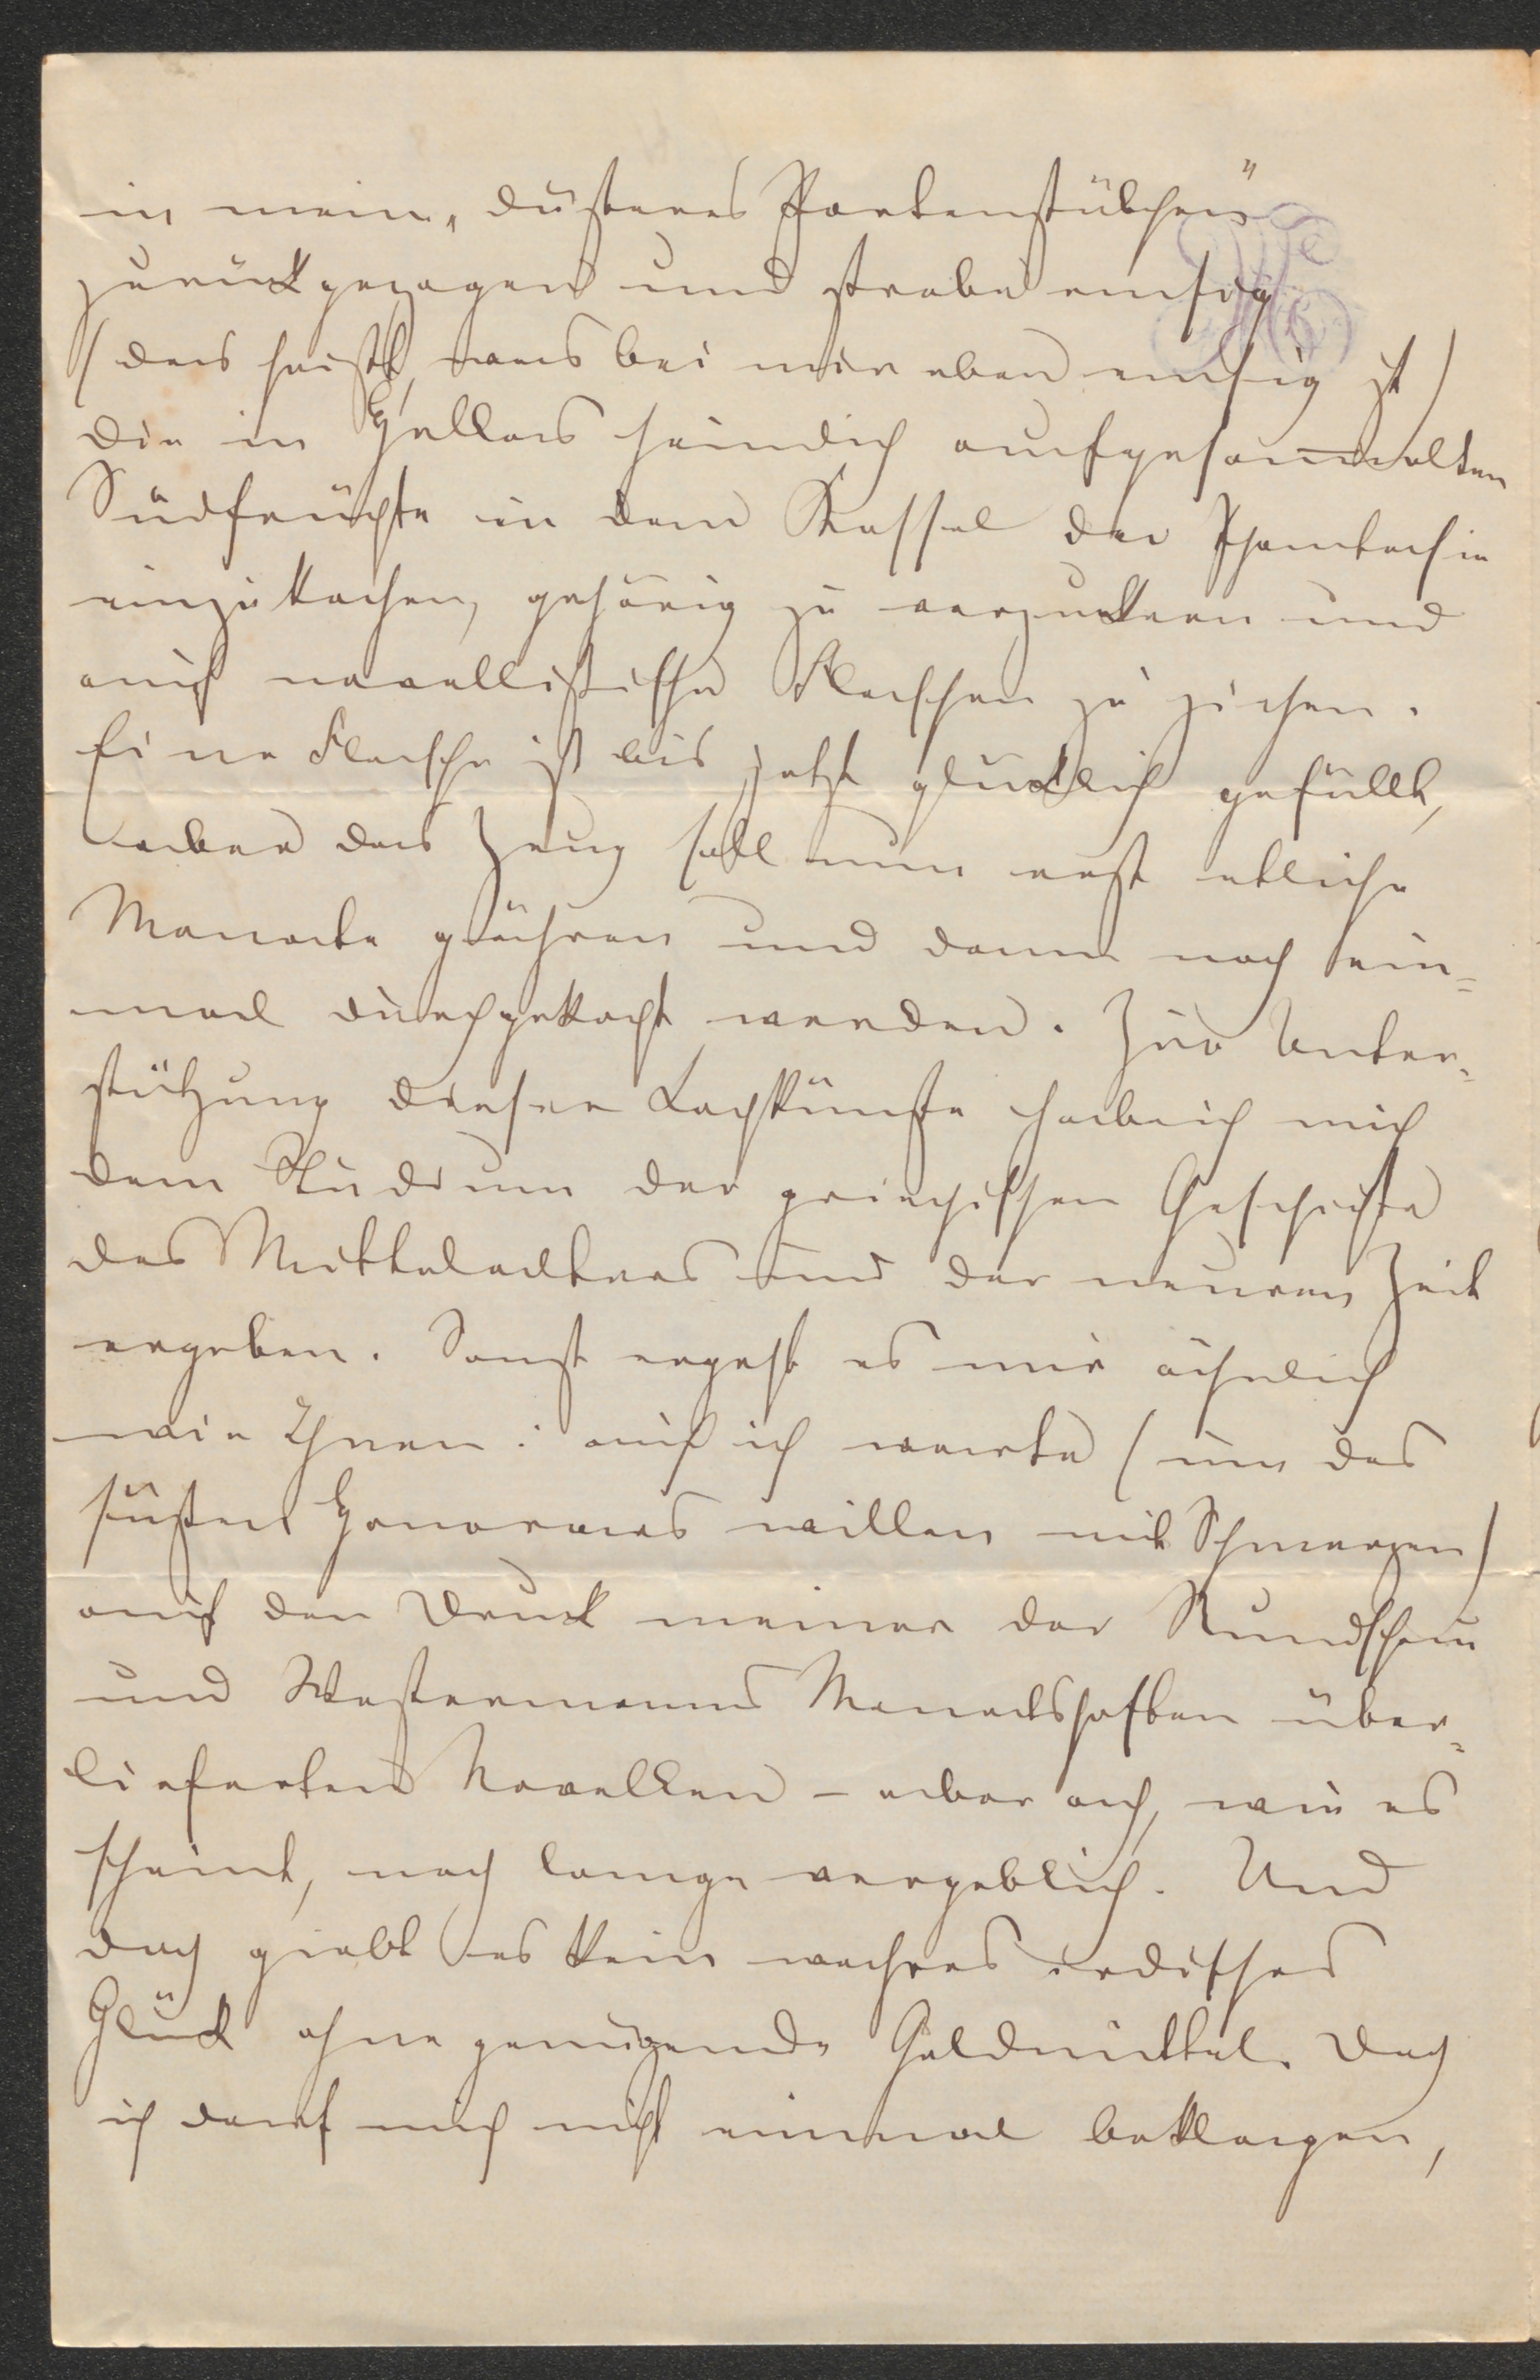 in mein „düsteres Poetenstübchen"
zurückgezogen und strebe emsig
(das heißt, was bei mir eben emsig ist)
die in Hellas heimlich aufgesammelten
Südfrüchte in dem Kessel der Phantasie
einzukochen, gehörig zu verzuckern und
auf novellistische Flaschen zu ziehen.
Eine Flasche ist bis jetzt glücklich gefüllt,
aber das Zeug soll nun erst etliche
Monate gähren und dann noch ein=
mal durchgekocht werden. Zur Unter=
stützung dieser Kochkünste habe ich mich
dem Studium der griechischen Geschichte
des Mittelalters und der neuren Zeit
ergeben. Sonst ergeht es mir ähnlich
wie Ihnen: auch ich warte (um des
süßen Honorares willen mit Schmerzen)
auf den Druck meiner der Rundschau
und Westermanns Monatsheften über=
lieferten Novellen – aber ach, wie es
scheint, noch lange vergeblich. Und
doch giebt es kein wahres irdisches
Glück ohne genügende Geldmittel. Doch
ich darf mich nicht einmal beklagen,